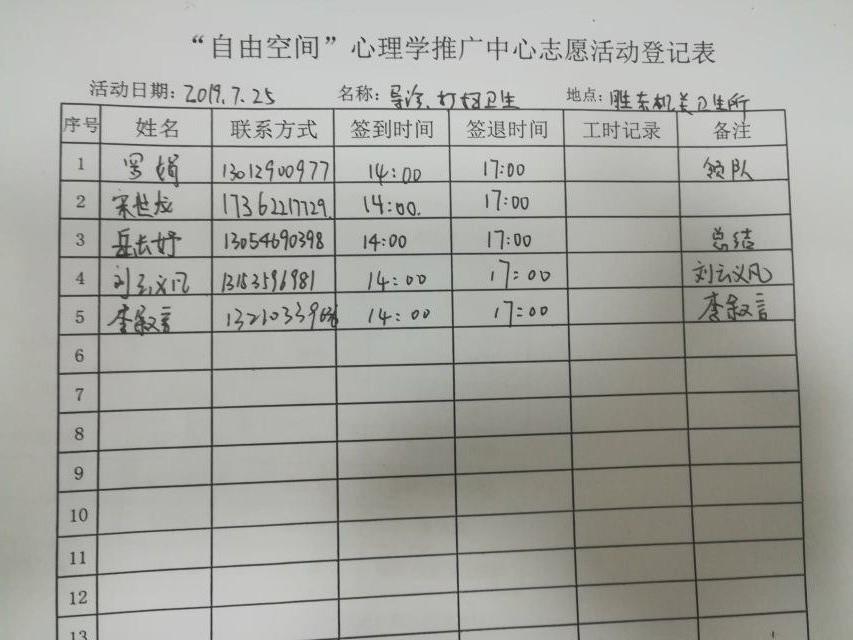 “自由空间”心理学推广中心志愿活动登记表
活动日期：2019.7.25 名称：导诊、打扫卫生 地点：胜东机关卫生所
序号 姓名 联系方式 签到时间 签退时间 工时记录 备注
1 罗娟 13012900977 14:00 17:00 领队
2 宋世龙 17362217729 14:00. 17:00
3 岳长好 13054690398 14:00 17:00 总结
4 刘云义凡 14:00 17:00 刘云义凡
5 李叙言 14:00 17:00 李叙言
6
7
8
9
10
11
12
13